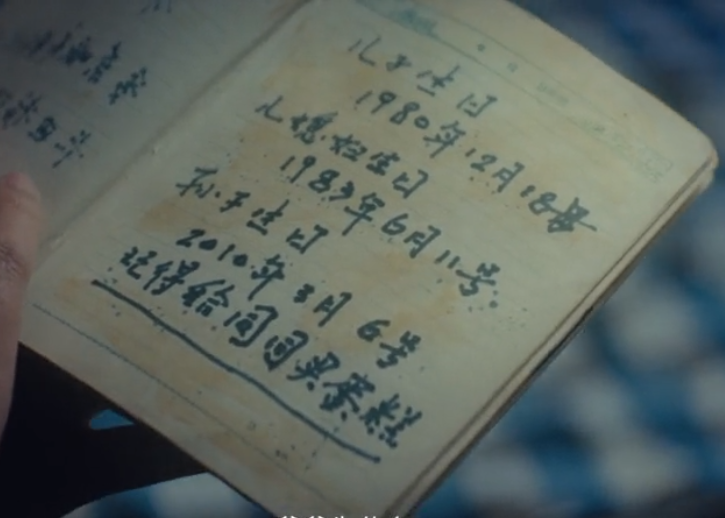 儿子生日
1980年12月18号
儿媳妇生日
1983年6月11号
孙子生日
2010年3月6号
记得给同同买蛋糕